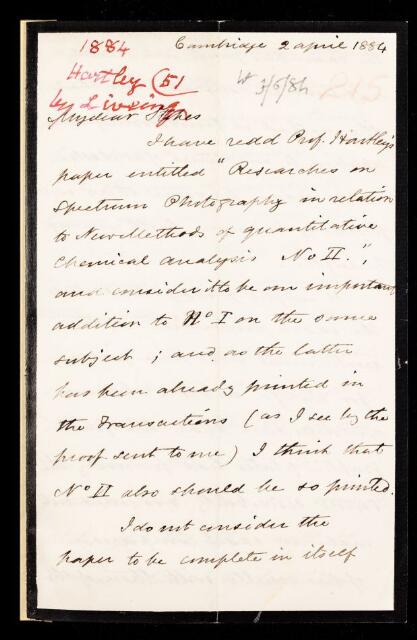 1884
Cambridge 2 april 1884
Hartley (51
by Liveing
3/6/84
215
My dear Stokes
I have redd Prof. Hartley's
paper entitled "Researches on
Spectrum Photography in relation
to New Methods of quantitative
Chemical analysis No II.",
and consider it to be an important
addition to No I on the same
subject ; and as the latter
has been already printed in
the Transactions (as I see by the
proof sent to me) I think that
No II also should be so printed.
I do not consider the
paper to be complete in itself